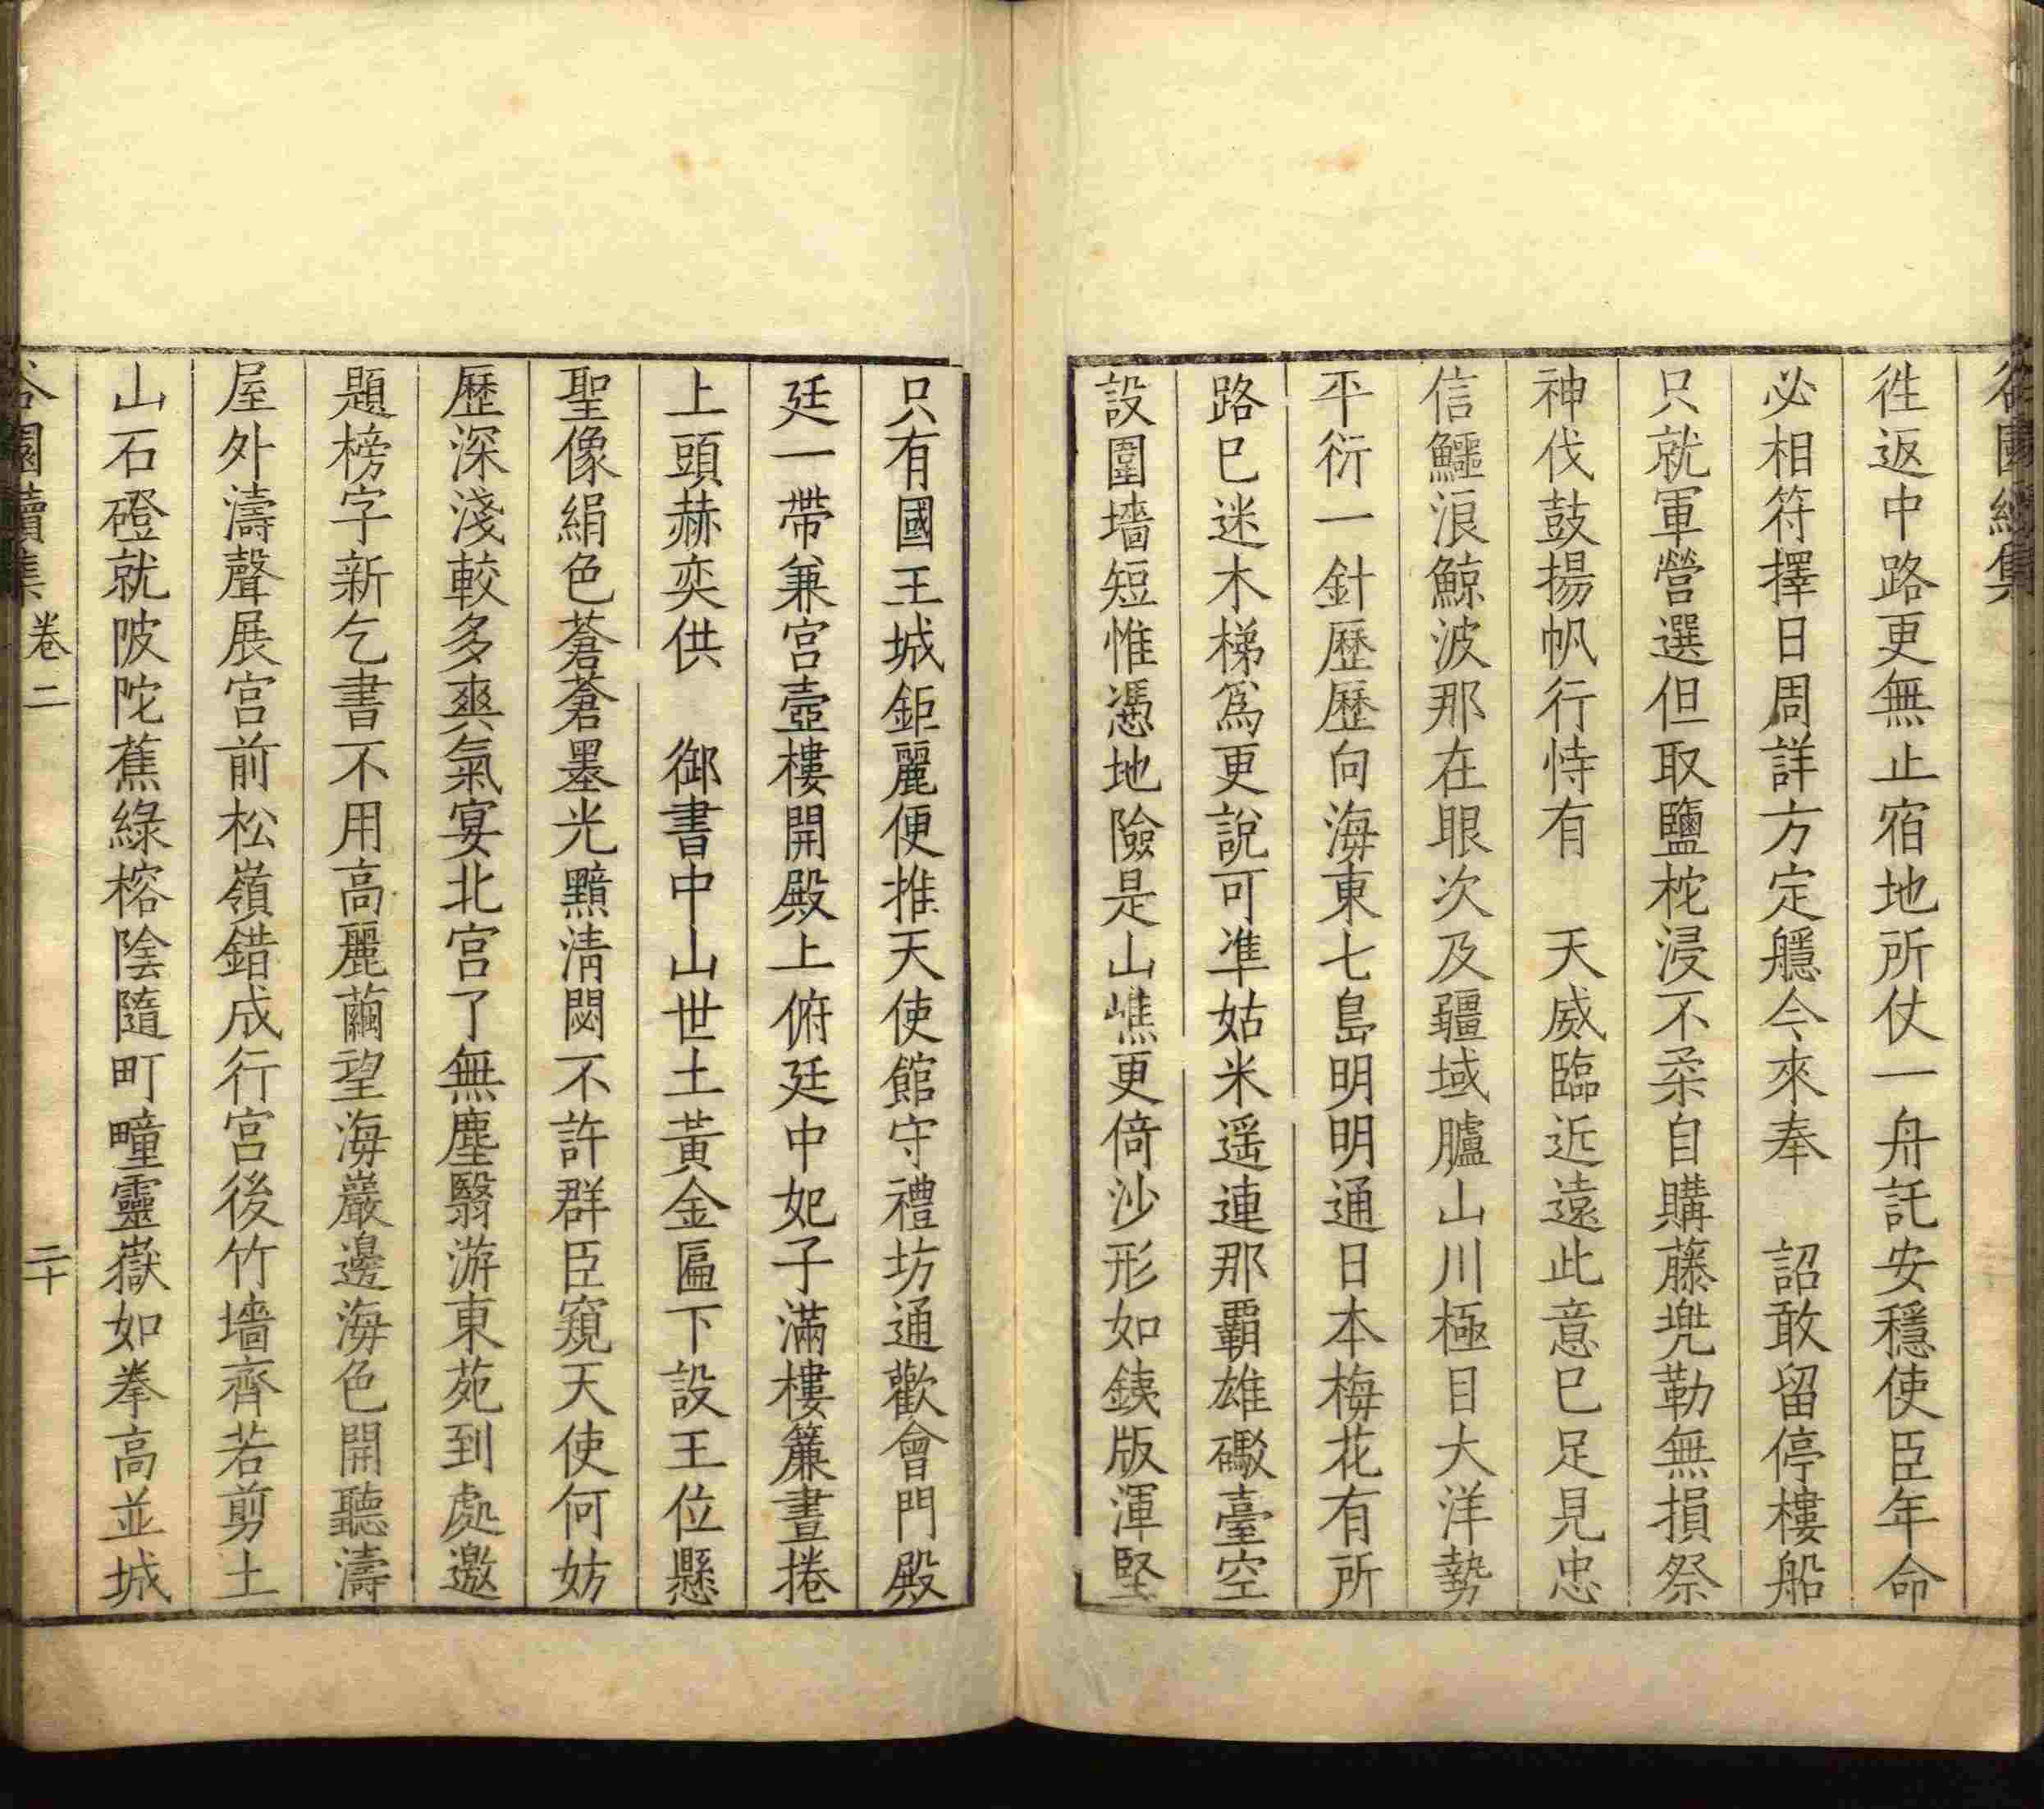 徃返中路更無止宿地所仗一舟託安穩使臣年命
必相符擇日周詳方定穩今來奉　詔敢留停樓船
只就軍營選但取鹽柁浸不柔自購藤兠勒無損祭
神伐鼓揚帆行恃有　天威臨近遠此意巳足見忠
信鱷浪鯨波那在眼次及疆域臚山川極目大洋勢
平衍一針歷歷向海東七島明明通日本梅花有所
路巳迷木梯爲更說可準姑米遥連那覇雄礮臺空
設圍墻短惟憑地險是山嶕更倚沙形如鐵版渾堅
只有國王城鉅麗便推天使館守禮坊通歡會門殿
廷一帶兼宫壼樓開殿上俯廷中妃子滿樓簾晝捲
上頭赫奕供　御書中山世土黃金匾下設王位懸
聖像絹色蒼蒼墨光黯淸閟不許群臣窺天使何妨
歷深淺較多爽氣宴北宫了無塵翳游東苑到處邀
題榜字新乞書不用高麗繭望海巖邊海色開聽濤
屋外濤聲展宫前松嶺錯成行宫後竹墻齊若剪土
山石磴就陂陀蕉綠榕陰隨町疃靈嶽如拳高並城
園續集　卷二　二十